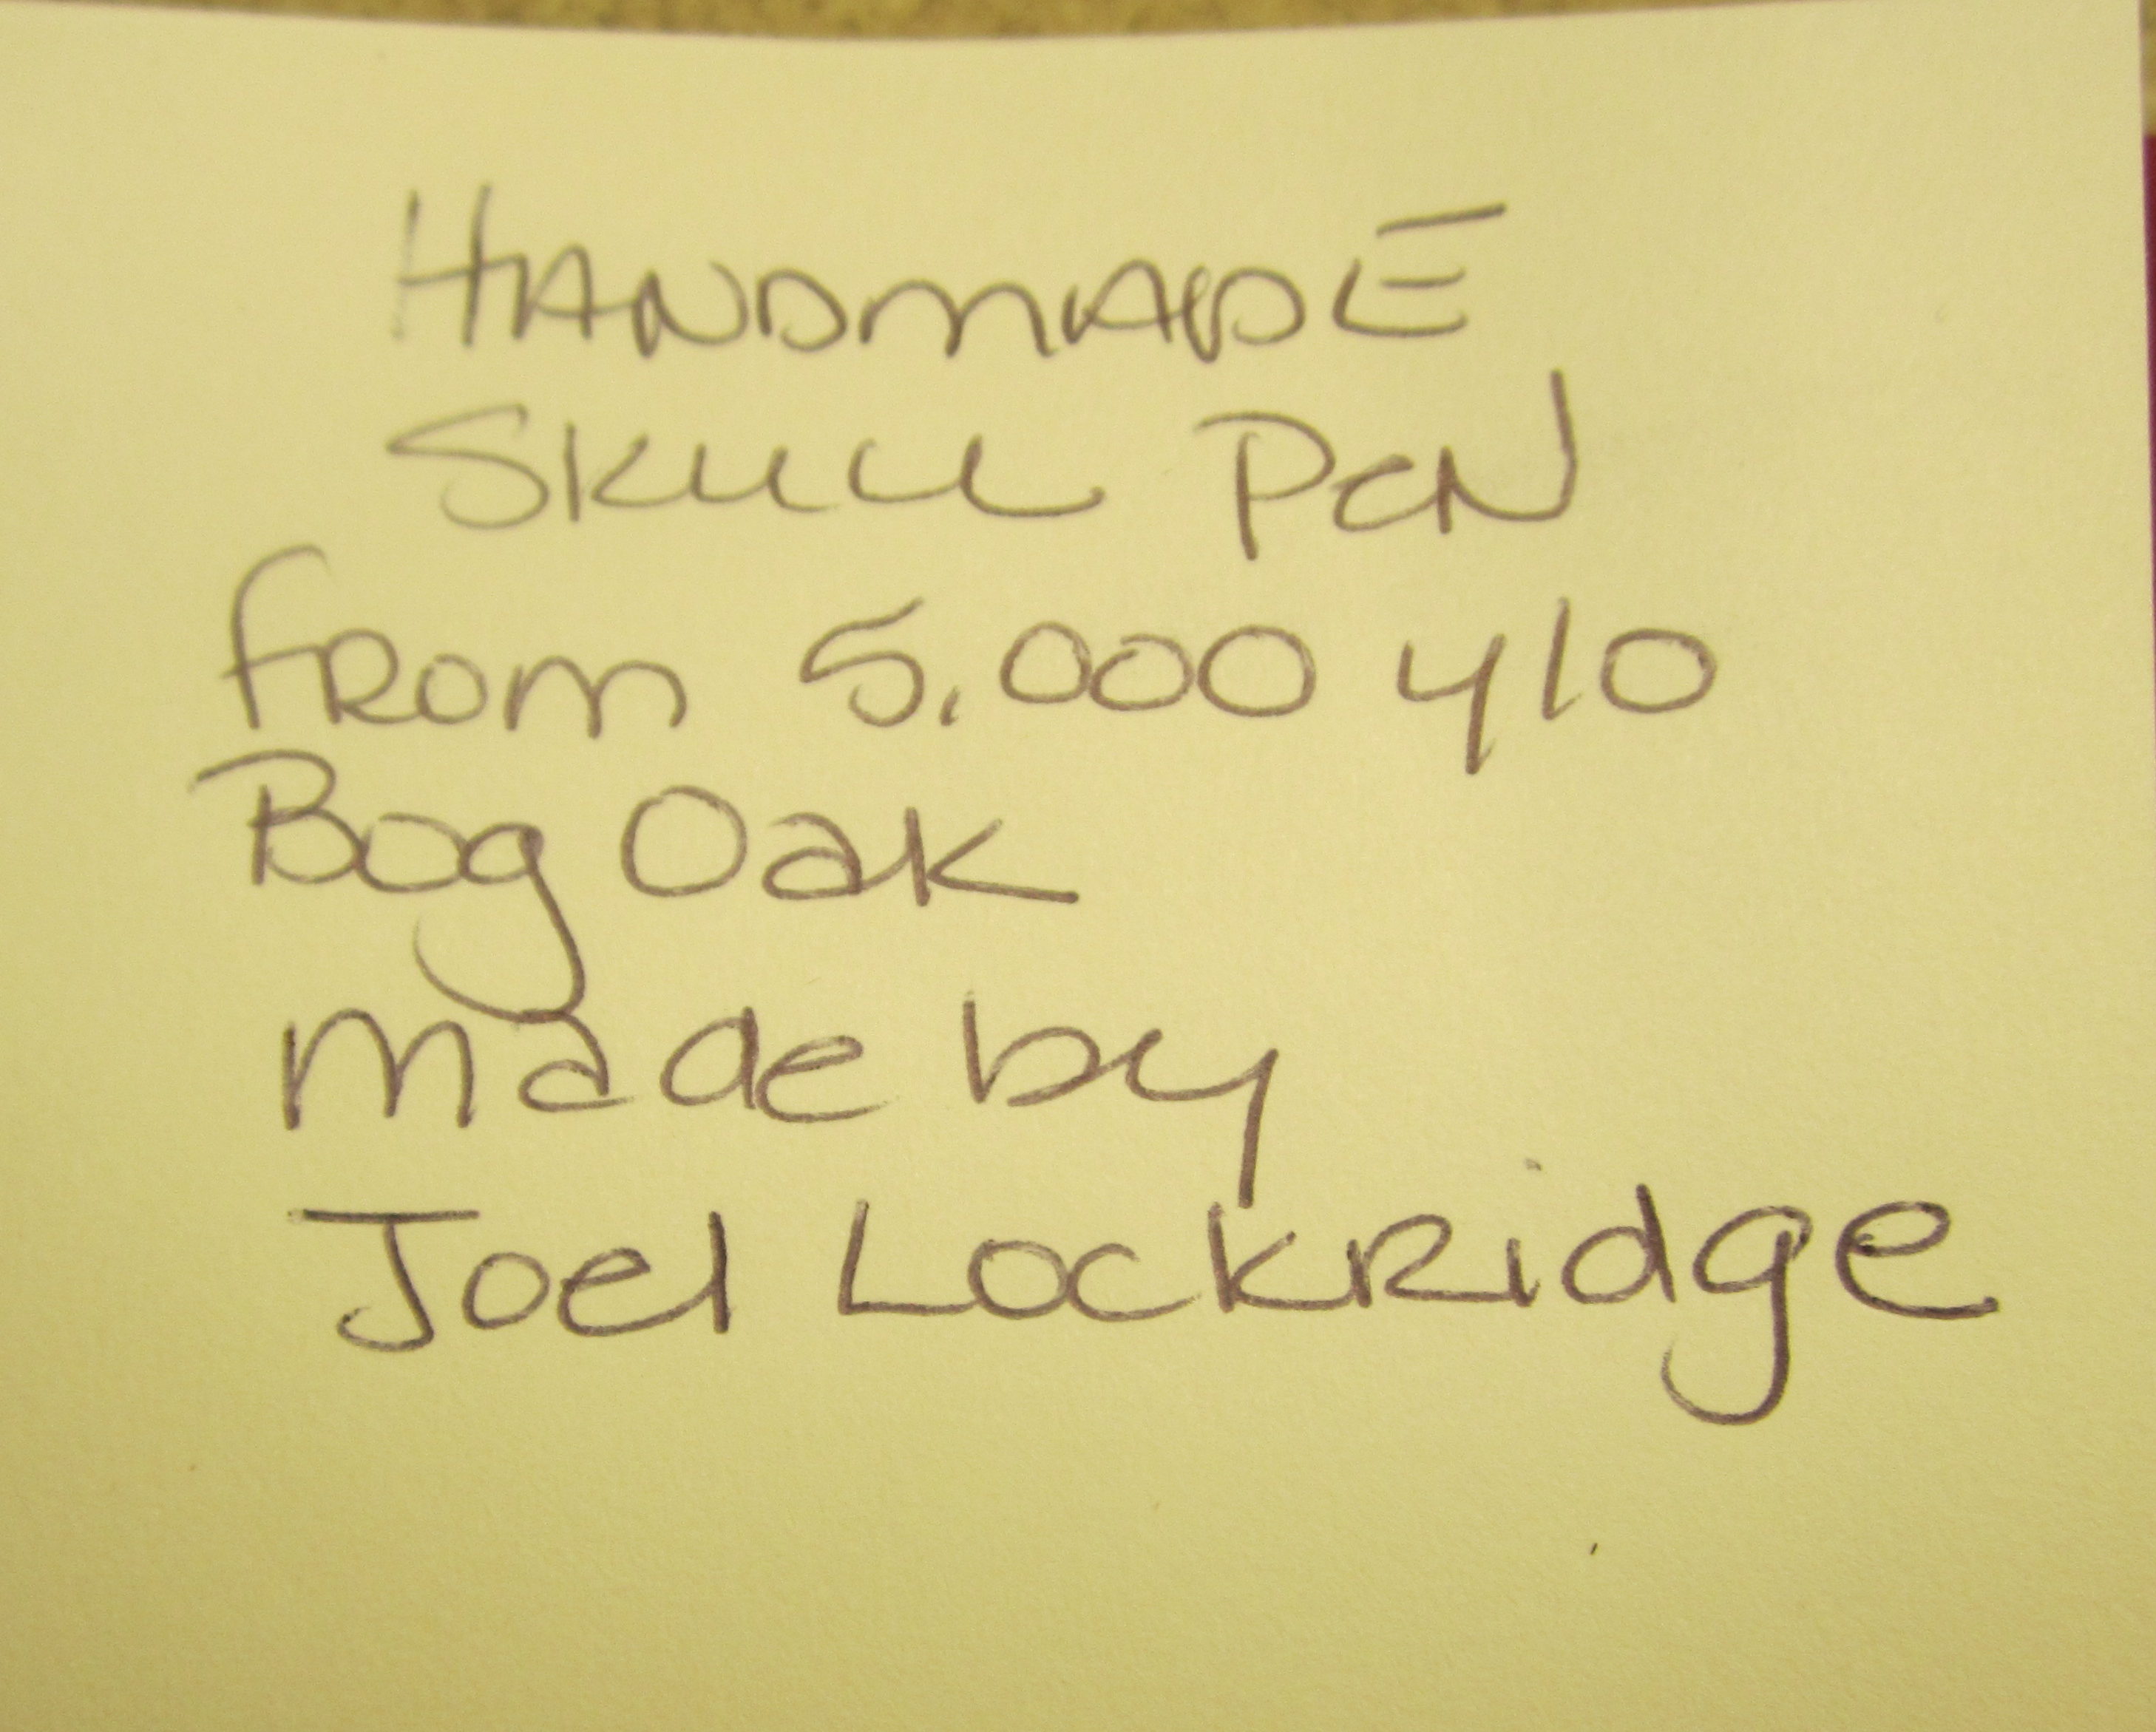 HANDMADE
SKULL PEN
from 5,000 y/o
Bog Oak
made by
Joel Lockridge